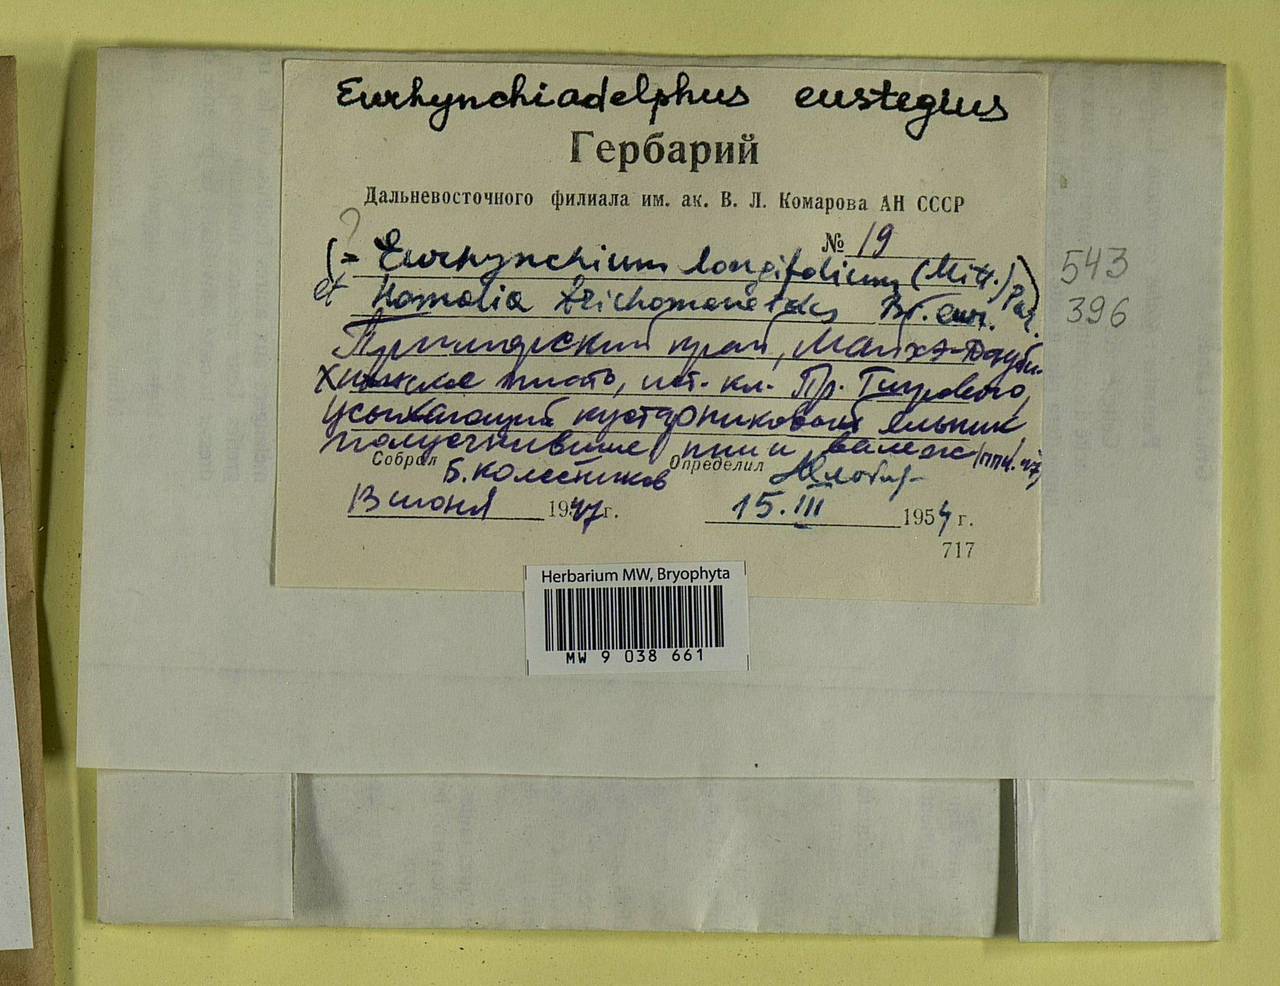 Eurhynchiadelphus eustegius
Гербарий
Дальневосточного филиала им. ак. В. Л. Комарова АН СССР
?
№ 19
(= Eurhynchium longifolium (Mitt.) Par.)
et Homalia trichomanoides Br. eur.
543
396
Приморский край, Майхэ-Дауби-
хинское плато, ист. кл. Пр. Тигрового,
усыхающий кустарниковый ельник
полусгнившие пни и валеж
Собрал Б. Колесников Определил
13 июня 1947 г. 15. III 1954 г.
717
Herbarium MW, Bryophyta
MW 9 038 661